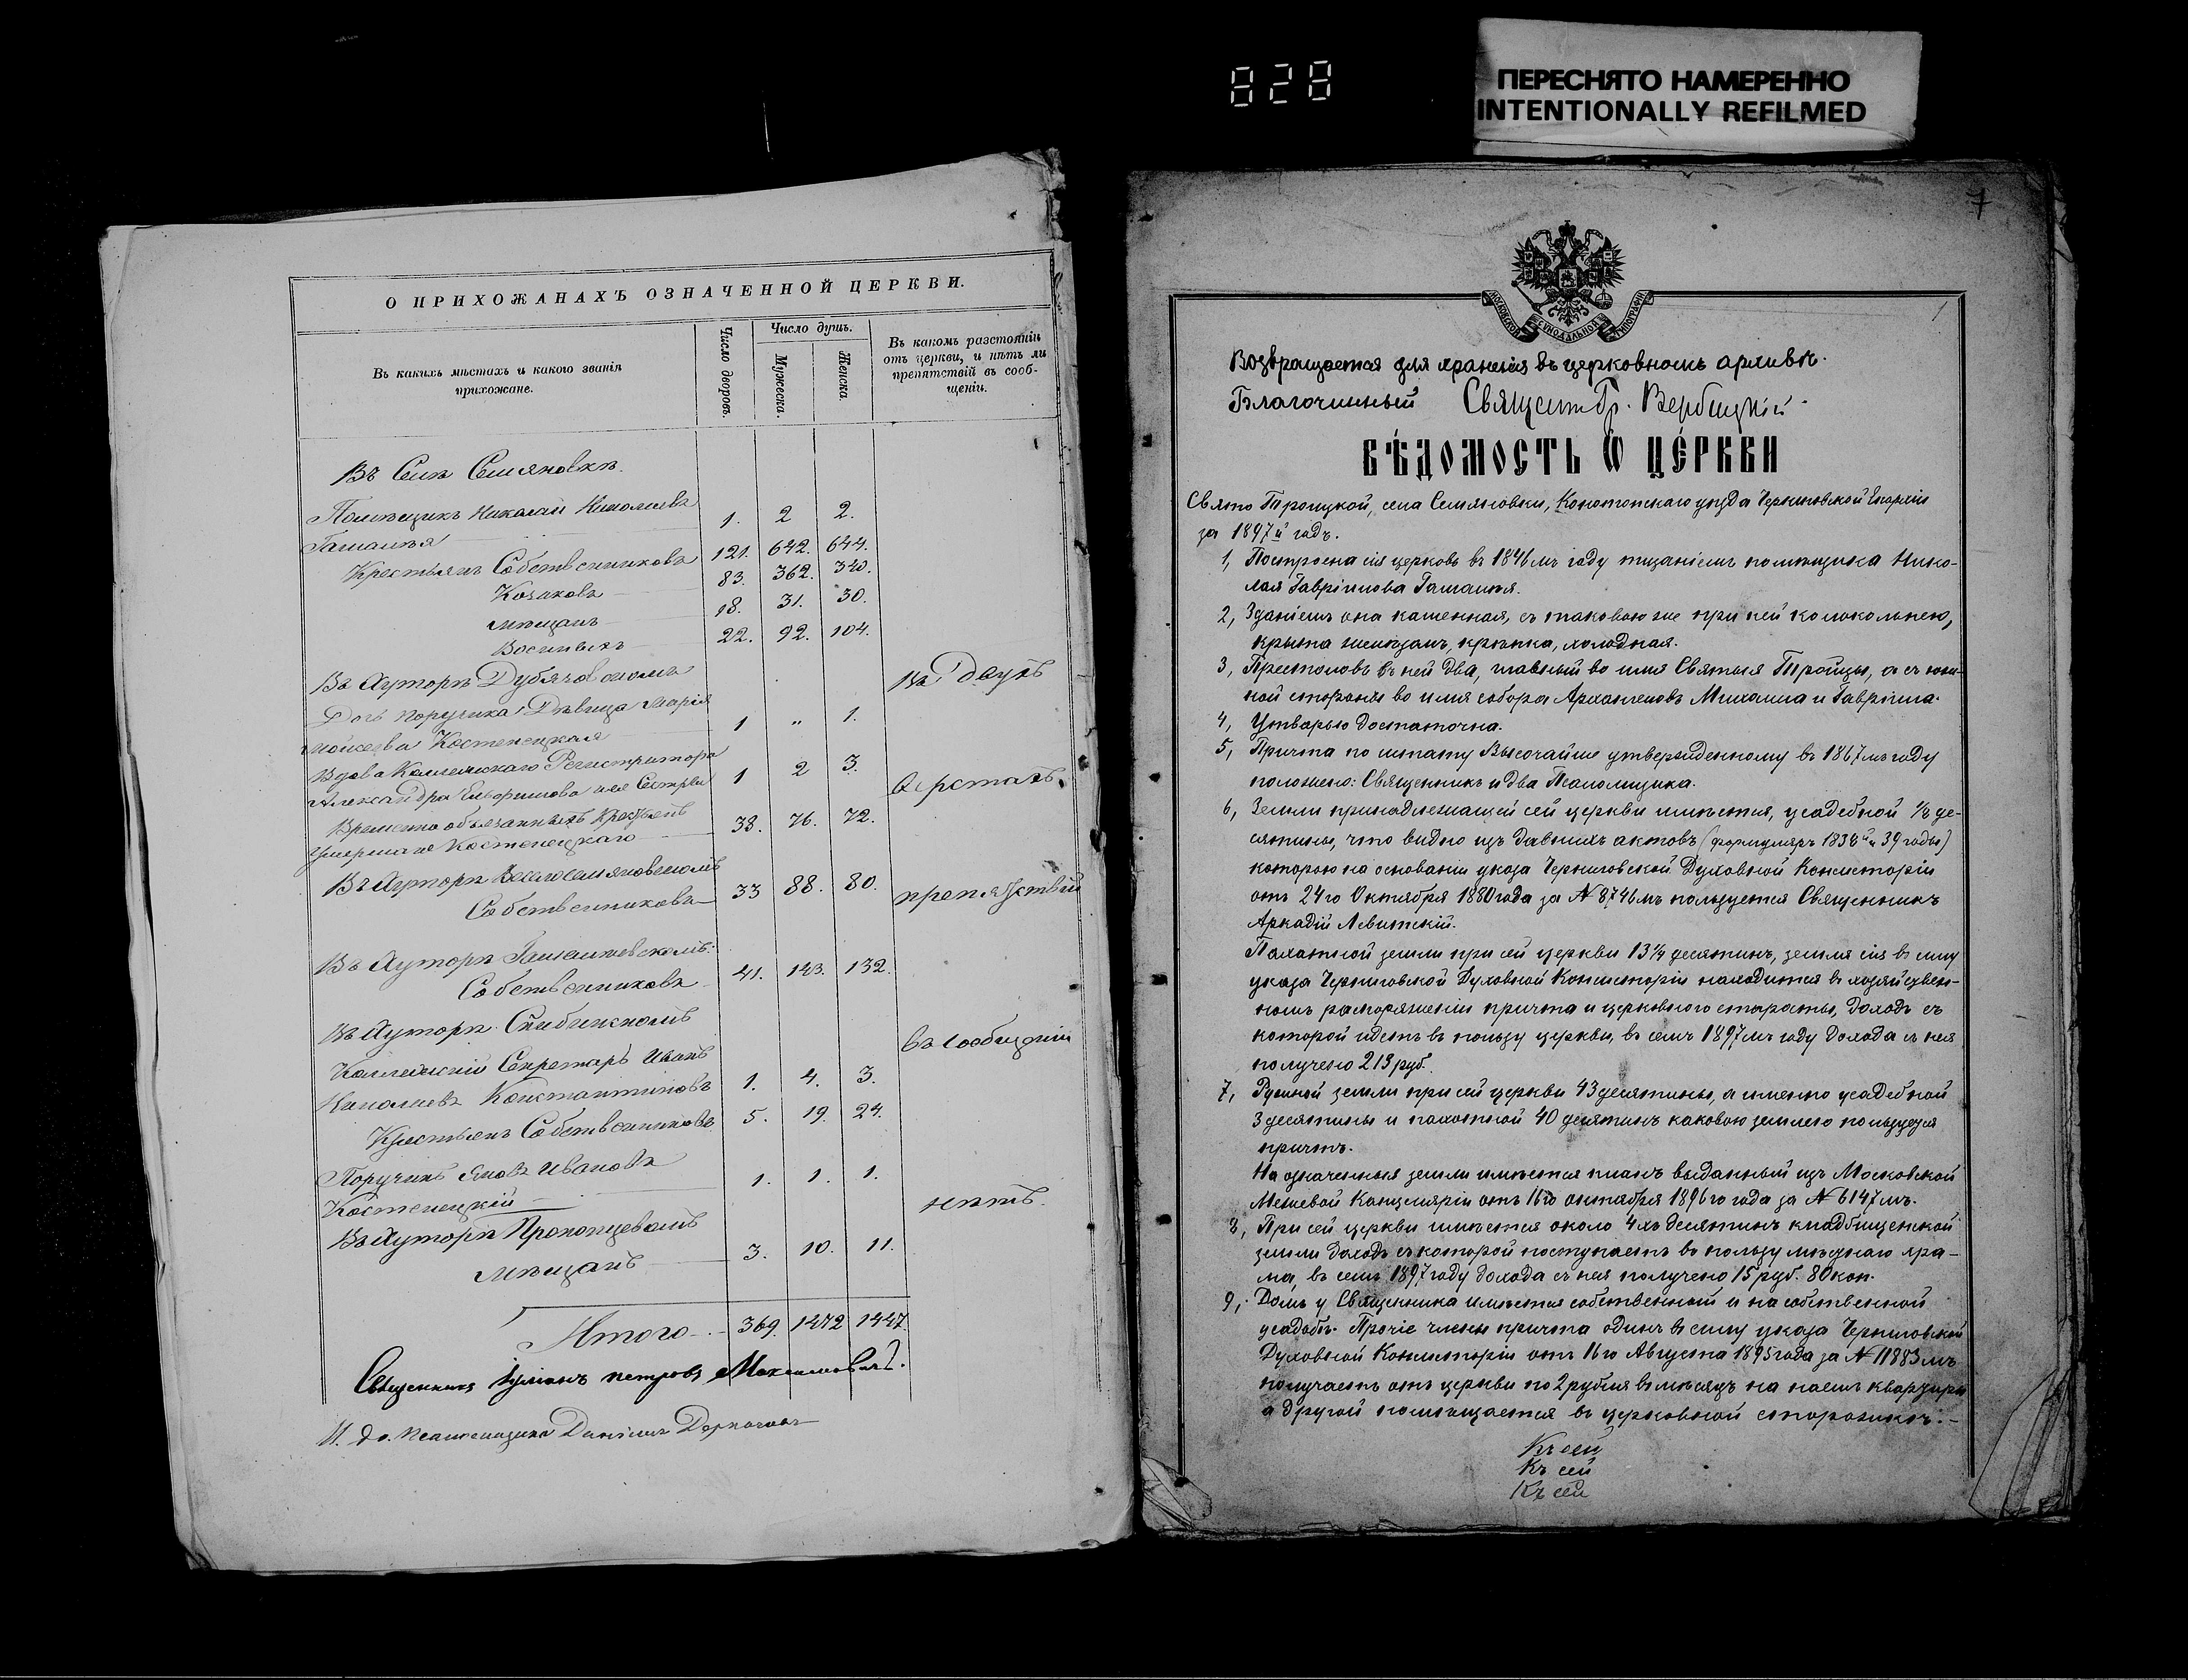 828
ПЕРЕСНЯТО НАМЕРЕННО
INTENTIONALLY REFILMED
О ПРИХОЖАНАХЪ ОЗНАЧЕННОЙ ЦЕРКВИ.
Въ какихъ мѣстахъ и какого званія прихожане.
Число дворовъ.
Число душъ.
Мужеска.
Женска.
Въ какомъ разстояніи
отъ церкви, и нѣтъ ли
препятствій въ сооб-
щеніи.
Въ Селѣ Семяновкѣ.
Помѣщикъ Николай Николаевъ
Гамалѣя 1. 2 2.
Крестьянъ Собственниковъ 121. 642. 644.
Козаковъ 83. 362. 340.
Мѣщанъ 18. 31. 30.
Военныхъ 22. 92. 104.
Въ Хуторѣ Дубяговскомъ
въ двухъ
Дочь поручика Дѣвица Марія
Мойсеева Костенецкая 1 „ 1.
Вдова Коллежскаго Регистратора
Александра и ея Сестры 1 2 3.
верстахъ
Временно обязанныхъ Крестьянъ
Костенецкаго 38. 76. 72.
Въ Хуторѣ
Собственниковъ 33 88. 80.
препятствій
Въ Хуторѣ Гамалѣевскомъ:
Собственниковъ 41. 143. 132.
Въ Хуторѣ
въ сообщеніи
Коллежскій Секретарь Иванъ
Николаевъ Константиновъ 1. 4. 3.
Крестьянъ Собственниковъ 5. 19. 24.
Поручикъ Яковъ Ивановъ
Костенецкій 1. 1. 1.
нѣтъ.
Въ Хуторѣ Прокопцевомъ
Мѣщанъ 3. 10. 11.
Итого 369. 1472 1447.
Священникъ Іуліанъ Петровъ Максимовичъ.
И. до. Псаломщика Даніилъ
7
1
МОСКОВСКОЙ СѴНОДАЛЬНОЙ ТИПОГРАФІИ
Возвращается для храненія въ церковномъ архивѣ.
Благочинный Священ. Гр. Вербицкій.
ВѢДОМОСТЬ Ѡ ЦЕРКВИ
Свято Троицкой, села Семяновки, Конотопскаго уѣзда Черниговской Епархіи
за 1897й годъ.
1, Построена сія церковь въ 1846мъ году тщаніемъ помѣщика Нико-
лая Гавріилова Гамалѣя.
2, Зданіемъ она каменная, съ таковою же при ней колокольнею,
крыта желѣзомъ, крѣпка, холодная.
3, Престоловъ въ ней два, главный во имя Святыя Тройцы, а съ юж-
ной стороны во имя собора Архангеловъ Михаила и Гавріила.
4, Утварью достаточна.
5, Причта по штату Высочайше утвержденному въ 1867мъ году
положено: Священникъ и два Псаломщика.
6, Земли принадлежащей сей церкви имѣется, усадебной 1/8 де-
сятины, что видно изъ давнихъ актовъ (формуляръ 1838й и 39 годы)
которою на основаніи указа Черниговской Духовной Консисторіи
отъ 24го Октября 1880 года за № 8746мъ пользуется Священникъ
Аркадій Левитскій.
Пахатной земли при сей церкви 13 1/4 десятинъ, земля сія въ силу
указа Черниговской Духовной Консисторіи находится въ хозяйствен-
номъ распоряженіи причта и церковного старосты, доходъ съ
которой идетъ въ пользу церкви, въ семъ 1897мъ году дохода съ нея
получено 213 руб.
7, Ружной земли при сей церкви 43 десятины, а именно усадебной
3 десятины и пахотной 40 десятинъ каковою землею пользуется
причтъ.
На означенныя земли имѣется планъ выданный изъ Московской
Межевой Канцеляріи отъ 16го октября 1896го года за № 6147мъ.
8, При сей церкви имѣется около 4хъ десятинъ кладбищенской
земли доходъ съ которой поступаетъ въ пользу мѣстнаго хра-
ма, въ семъ 1897 году дохода съ нея получено 15 руб. 80 коп.
9, Домъ у Священника имѣется собственный и на собственной
усадьбѣ. Прочіе члены причта одинъ въ силу указа Черниговской
Духовной Консисторіи отъ 16го Августа 1895 года за № 11883мъ
получаетъ отъ церкви по 2 рубля въ мѣсяцъ на наемъ квартиры
а другой помѣщается въ церковной сторожкѣ.
Къ сей
Къ сей
Къ сей